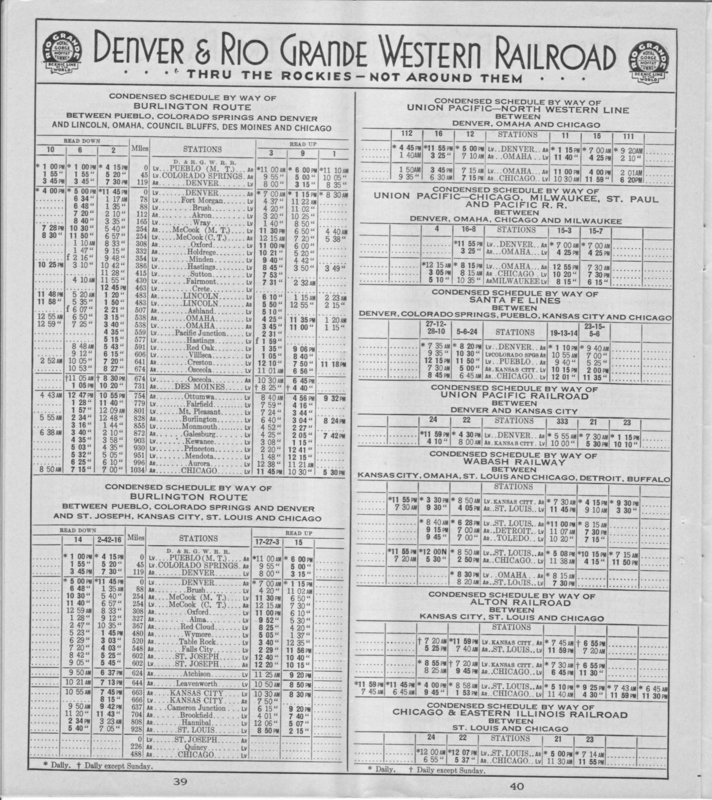 RIO GRANDE
ROYAL GORGE
MOFFAT TUNNEL
SCENIC LINE
WORLD
DENVER & RIO GRANDE WESTERN RAILROAD
THRU THE ROCKIES—NOT AROUND THEM
RIO GRANDE
ROYAL GORGE
MOFFAT TUNNEL
SCENIC LINE
WORLD
CONDENSED SCHEDULE BY WAY OF
BURLINGTON ROUTE
BETWEEN PUEBLO, COLORADO SPRINGS AND DENVER
AND LINCOLN, OMAHA, COUNCIL BLUFFS, DES MOINES AND CHICAGO
READ DOWN READ UP
10 6 2 Miles STATIONS 3 9 1
D. & R. G. W. R. R.
* 1 00 PM * 1 00 PM * 4 15 PM 0 Lv PUEBLO (M. T.) Ar *11 00 AM * 6 00 PM *11 10 AM
1 55 " 1 55 " 5 20 " 45 Lv COLORADO SPRINGS Ar 9 55 " 5 00 " 10 05 "
3 45 PM 3 45 " 7 30 PM 119 Ar DENVER Lv 8 00 " 3 15 " 8 35 "
* 4 00 PM * 5 00 " *11 45 PM 0 Lv DENVER Ar * 7 00 " * 1 15 PM * 8 30 AM
6 34 " 1 17 AM 78 Ar Fort Morgan Lv 4 37 " 11 22 AM
6 48 " 1 35 " 88 Ar Brush Lv 4 20 " 11 02 "
7 20 " 2 10 " 112 Ar Akron Lv 3 20 " 10 25 "
8 40 " 3 35 " 165 Ar Wray Lv 1 40 " 8 50 "
7 28 PM 10 30 " 5 40 " 254 Ar McCook (M. T.) Lv 11 30 PM 6 50 " 4 40 AM
8 30 " 11 50 " 6 57 " 254 Lv McCook (C. T.) Ar 12 15 AM 7 20 " 5 38 "
1 10 AM 8 33 " 308 Ar Oxford Lv 11 00 PM 6 00 "
1 47 " 9 15 " 332 Ar Holdrege Lv 10 21 " 5 20 "
f 2 16 " 9 48 " 354 Ar Minden Lv 9 40 " 4 42 "
10 25 PM 3 10 " 10 42 " 386 Ar Hastings Lv 8 45 " 3 50 " 3 49 "
11 28 " 415 Ar Sutton Lv 7 53 "
4 10 AM 11 55 " 439 Ar Fairmont Lv 7 31 " 2 32 AM
12 45 PM 463 Ar Crete Lv
11 48 PM 5 20 AM 1 20 " 483 Ar LINCOLN Lv 6 10 " 1 15 AM 2 23 AM
11 58 " 5 35 " 1 50 " 483 Lv LINCOLN Ar 5 50 " 12 55 " 2 15 "
f 6 07 " 2 21 " 507 Ar Ashland Lv 5 10 "
12 55 AM 6 50 " 3 15 " 538 Ar OMAHA Lv 4 25 " 11 35 PM 1 20 AM
12 59 " 7 25 " 3 40 " 538 Lv OMAHA Ar 3 45 " 11 00 " 1 15 "
4 35 " 559 Ar Pacific Junction Lv 2 31 "
5 15 " 577 Ar Hastings Lv f 1 59 "
8 48 AM 5 43 " 591 Ar Red Oak Lv 1 35 " 9 06 PM
9 12 " 6 15 " 606 Ar Villisca Lv 1 05 " 8 40 "
2 52 AM 10 05 " 7 20 " 641 Ar Creston Lv 12 10 " 7 50 " 11 18 PM
10 53 " 8 27 " 674 Ar Osceola Lv 11 01 AM 6 56 "
†11 05 AM † 8 30 PM 674 Lv Osceola Ar 10 30 AM 6 45 PM
1 05 PM 10 20 " 731 Ar DES MOINES Lv † 8 25 " † 4 40 "
4 43 AM 12 47 PM 10 55 PM 754 Ar Ottumwa Lv 8 40 AM 4 56 PM 9 32 PM
1 28 " 11 40 " 779 Ar Fairfield Lv 7 59 " 4 16 "
1 57 " 12 09 AM 801 Ar Mt. Pleasant Lv 7 24 " 3 44 "
5 55 AM 2 34 " 12 48 " 828 Ar Burlington Lv 6 40 " 3 04 " 8 24 PM
3 16 " 1 44 " 855 Ar Monmouth Lv 4 52 " 2 27 "
6 38 AM 3 40 " 2 10 " 872 Ar Galesburg Lv 4 25 " 2 05 " 7 42 PM
4 35 " 3 58 " 903 Ar Kewanee Lv 3 08 " 1 15 "
5 03 " 4 35 " 930 Ar Princeton Lv 2 20 " 12 41 "
5 32 " 5 05 " 951 Ar Mendota Lv 1 48 " 12 15 "
6 25 " 6 10 " 996 Ar Aurora Lv 12 38 " 11 21 AM
8 50 AM 7 15 " 7 00 " 1034 Ar CHICAGO Lv 11 45 PM 10 30 " 5 30 PM
CONDENSED SCHEDULE BY WAY OF
BURLINGTON ROUTE
BETWEEN PUEBLO, COLORADO SPRINGS AND DENVER
AND ST. JOSEPH, KANSAS CITY, ST. LOUIS AND CHICAGO
READ DOWN READ UP
14 2-42-16 Miles STATIONS 17-27-3 15
D. & R. G. W. R. R.
* 1 00 PM * 4 15 PM 0 Lv PUEBLO (M. T.) Ar *11 00 AM * 6 00 PM
1 55 " 5 20 " 45 Lv COLORADO SPRINGS Ar 9 55 " 5 00 "
3 45 PM 7 30 " 119 Ar DENVER Lv 8 00 " 3 15 "
* 5 00 PM *11 45 PM 0 Lv DENVER Ar * 7 00 " * 1 15 PM
6 48 " 1 35 AM 88 Ar Brush Lv 4 20 " 11 02 AM
10 30 " 5 40 " 254 Ar McCook (M. T.) Lv 11 30 PM 6 50 "
11 40 " 6 57 " 254 Lv McCook (C. T.) Ar 12 15 AM 7 30 "
12 59 AM 8 33 " 308 Ar Oxford Lv 11 00 PM 6 10 "
1 28 " 9 12 " 327 Ar Alma Lv 9 52 " 5 30 "
2 47 " 10 35 " 367 Ar Red Cloud Lv 8 25 " 4 20 "
5 23 " 1 45 PM 480 Ar Wymore Lv 5 05 " 1 37 "
6 29 " 3 03 " 520 Ar Table Rock Lv 3 40 " 12 35 "
7 20 " 4 03 " 548 Ar Falls City Lv 2 29 " 11 56 PM
8 42 " 5 25 " 602 Ar ST. JOSEPH Lv 12 40 " 10 40 "
9 05 " 5 45 " 602 Lv ST. JOSEPH Ar 12 20 " 10 15 "
9 50 AM 6 37 PM 624 Ar Atchison Lv 11 25 AM 9 20 PM
10 21 AM 7 13 PM 644 Ar Leavenworth Lv 10 50 AM 8 50 PM
10 55 AM 7 45 PM 663 Ar KANSAS CITY Lv 10 30 AM 8 30 PM
8 15 " 666 Lv KANSAS CITY Ar 7 50 "
9 50 AM 9 42 PM 637 Ar Cameron Junction Lv 6 15 " 9 20 PM
11 20 " 11 43 " 704 Ar Brookfield Lv 4 01 " 7 40 "
2 34 PM 3 23 AM 808 Ar Hannibal Lv 12 05 " 5 07 "
5 40 " 7 05 " 928 Ar ST. LOUIS Lv 8 50 PM 2 15 "
0 Lv ST. JOSEPH Ar
226 Ar Quincy Lv
488 Ar CHICAGO Lv
* Daily. † Daily except Sunday.
39
CONDENSED SCHEDULE BY WAY OF
UNION PACIFIC—NORTH WESTERN LINE
BETWEEN
DENVER, OMAHA AND CHICAGO
112 16 12 STATIONS 11 15 111
* 4 45 PM *11 55 PM * 5 00 PM Lv DENVER Ar * 1 15 PM * 7 00 AM * 9 20 AM
1 40 AM 3 25 " 7 10 AM Ar OMAHA Lv 11 40 " 4 25 PM 2 10 "
1 50 AM 3 45 PM 7 15 AM Lv OMAHA Ar 11 00 PM 4 00 PM 2 01 AM
9 35 " 6 30 AM 7 15 PM Ar CHICAGO Lv 10 30 AM 11 59 " 6 20 PM
CONDENSED SCHEDULE BY WAY OF
UNION PACIFIC—CHICAGO, MILWAUKEE, ST. PAUL
AND PACIFIC R. R.
BETWEEN
DENVER, OMAHA, CHICAGO AND MILWAUKEE
4 16-8 STATIONS 15-3 15-7
*11 55 PM Lv DENVER Ar * 7 00 AM * 7 00 AM
3 25 " Ar OMAHA Lv 4 25 PM 4 25 PM
*12 15 AM * 8 15 PM Lv OMAHA Ar 12 55 PM 7 30 AM
3 05 PM 8 15 AM Ar CHICAGO Lv 10 20 " 7 30 PM
5 10 " 10 35 " Ar MILWAUKEE Lv 8 15 " 6 15 "
CONDENSED SCHEDULE BY WAY OF
SANTA FE LINES
BETWEEN
DENVER, COLORADO SPRINGS, PUEBLO, KANSAS CITY AND CHICAGO
27-12-28-10 5-6-24 STATIONS 19-13-14 23-15-5-6
* 7 35 AM * 8 20 PM Lv DENVER Ar * 1 10 PM * 9 40 AM
9 35 " 10 30 " Lv COLORADO SPGS Ar 10 55 AM 7 00 "
12 15 PM 11 50 " Lv PUEBLO Ar 9 40 " 5 25 "
7 30 AM 5 00 " Ar KANSAS CITY Lv 10 15 PM 2 00 PM
8 45 PM 6 45 AM Ar CHICAGO Lv 12 01 " 11 35 "
CONDENSED SCHEDULE BY WAY OF
UNION PACIFIC RAILROAD
BETWEEN
DENVER AND KANSAS CITY
24 22 STATIONS 333 21 23
*11 59 PM * 4 30 PM Lv DENVER Ar * 5 55 AM * 7 30 AM * 1 15 PM
4 10 " 8 00 AM Ar KANSAS CITY Lv 10 00 " 5 30 PM 10 10 "
CONDENSED SCHEDULE BY WAY OF
WABASH RAILWAY
BETWEEN
KANSAS CITY, OMAHA, ST. LOUIS AND CHICAGO, DETROIT, BUFFALO
*11 55 PM * 3 30 PM * 8 50 AM Lv KANSAS CITY Ar * 7 30 AM * 4 15 PM * 9 30 PM
7 30 AM 9 30 " 4 05 PM Ar ST. LOUIS Lv 11 45 PM 9 10 AM 3 30 "
* 8 40 PM * 6 28 PM Lv ST. LOUIS Ar *11 00 PM * 8 15 AM
9 15 PM 7 30 AM Ar DETROIT Lv 11 07 AM 7 30 PM
9 45 " 7 00 " Ar TOLEDO Lv 10 20 " 7 15 "
*11 55 PM *12 00 N * 8 50 AM Lv ST. LOUIS Ar * 5 08 PM *10 15 PM * 7 15 AM
7 20 AM 5 30 " 2 50 PM Ar CHICAGO Lv 11 38 AM 4 15 " 11 50 PM
* 8 30 PM Lv OMAHA Ar * 8 15 AM
7 22 AM Ar ST. LOUIS Lv 7 30 PM
CONDENSED SCHEDULE BY WAY OF
ALTON RAILROAD
BETWEEN
KANSAS CITY, ST. LOUIS AND CHICAGO
† 7 20 AM *11 59 PM Lv KANSAS CITY Ar * 7 45 AM † 6 55 PM
5 25 PM 7 40 AM Ar ST. LOUIS Lv 11 59 PM 7 20 AM
* 8 55 PM † 7 20 AM Lv KANSAS CITY Ar * 7 30 AM † 6 55 PM
8 25 AM 9 45 PM Ar CHICAGO Lv 6 45 PM 11 30 "
*11 59 PM *11 45 PM * 4 00 PM * 8 58 AM Lv ST. LOUIS Ar * 5 10 PM * 9 25 PM * 7 43 AM * 6 45 AM
7 45 AM 6 45 AM 9 45 " 1 53 PM Ar CHICAGO Lv 11 40 AM 4 30 " 11 59 PM 11 30 PM
CONDENSED SCHEDULE BY WAY OF
CHICAGO & EASTERN ILLINOIS RAILROAD
BETWEEN
ST. LOUIS AND CHICAGO
24 22 STATIONS 21 23
*12 00 AM *12 07 PM Lv ST. LOUIS Ar * 5 00 PM * 7 14 AM
6 55 " 5 37 " Ar CHICAGO Lv 11 30 AM 11 55 PM
* Daily. † Daily except Sunday.
40